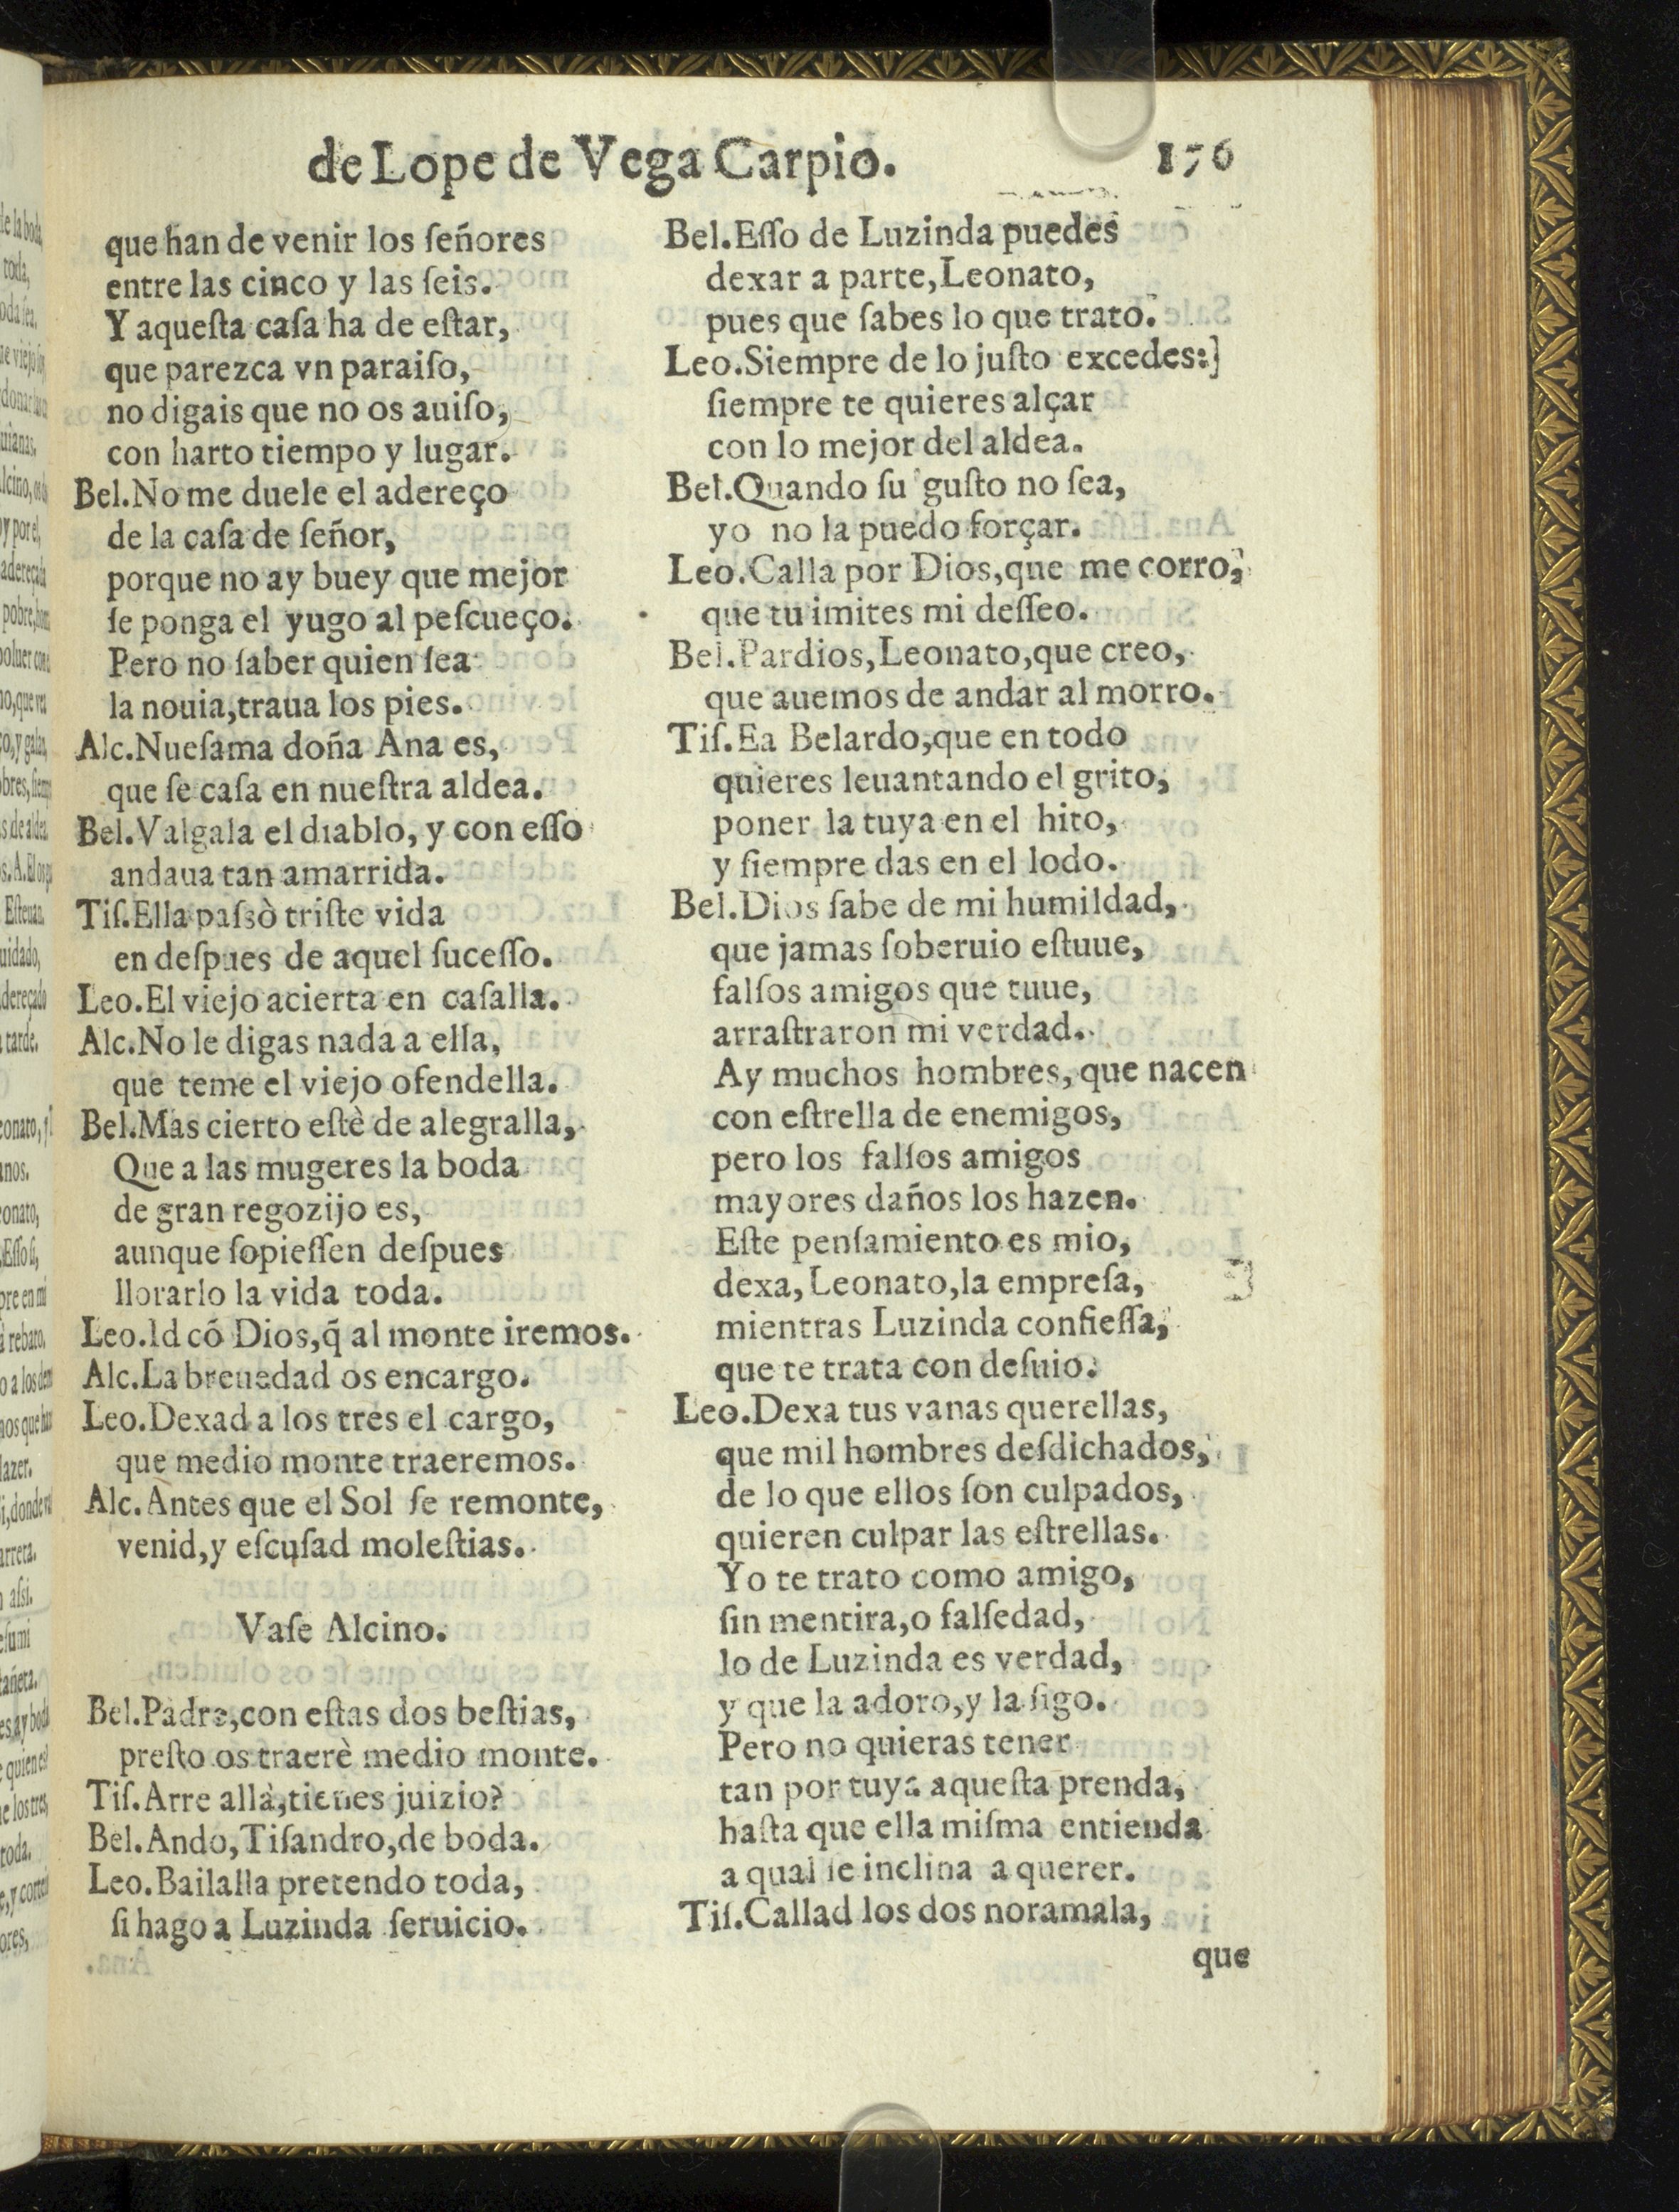 de Lope de Vega Carpio. 176
que han de venir los ſeñores
entre las cinco y las ſeis.
Y aqueſta caſa ha de eſtar,
que parezca vn paraiſo,
no digais que no os auiſo,
con harto tiempo y lugar.
Bel.No me duele el adereço
de la caſa de ſeñor,
porque no ay buey que mejor
ſe ponga el yugo al peſcueço.
Pero no ſaber quien ſea
la nouia,traua los pies.
Alc.Nueſama doña Ana es,
que ſe caſa en nueſtra aldea.
Bel.Valgala el diablo, y con eſſo
andaua tan amarrida.
Tiſ.Ella paſsò triſte vida
en deſpues de aquel ſuceſſo.
Leo.El viejo acierta en caſalla.
Alc.No le digas nada a ella,
que teme el viejo ofendella.
Bel.Mas cierto eſtè de alegralla,
Que a las mugeres la boda
de gran regozijo es,
aunque ſopieſſen deſpues
llorarlo la vida toda.
Leo.Id cõ Dios,q̃ al monte iremos.
Alc.La breuedad os encargo.
Leo.Dexad a los tres el cargo,
que medio monte traeremos.
Alc.Antes que el Sol ſe remonte,
venid,y eſcuſad moleſtias.
Vaſe Alcino.
Bel.Padre,con eſtas dos beſtias,
preſto os traerè medio monte.
Tiſ.Arre allà,tienes juizio?
Bel.Ando,Tiſandro,de boda.
Leo.Bailalla pretendo toda,
ſi hago a Luzinda ſeruicio.
Bel.Eſſo de Luzinda puedes
dexar a parte,Leonato,
pues que ſabes lo que trato.
Leo.Siempre de lo juſto excedes:]
ſiempre te quieres alçar
con lo mejor del aldea.
Bel.Quando ſu guſto no ſea,
yo no la puedo forçar.
Leo.Calla por Dios,que me corro,
que tu imites mi deſſeo.
Bel.Pardios,Leonato,que creo,
que auemos de andar al morro.
Tiſ.Ea Belardo,que en todo
quieres leuantando el grito,
poner la tuya en el hito,
y ſiempre das en el lodo.
Bel.Dios ſabe de mi humildad,
que jamas ſoberuio eſtuue,
falſos amigos que tuue,
arraſtraron mi verdad.
Ay muchos hombres, que nacen
con eſtrella de enemigos,
pero los falſos amigos
mayores daños los hazen.
Eſte penſamiento es mio,
dexa, Leonato,la empreſa,
mientras Luzinda confieſſa,
que te trata con deſuio.
Leo.Dexa tus vanas querellas,
que mil hombres deſdichados,
de lo que ellos ſon culpados,
quieren culpar las eſtrellas.
Yo te trato como amigo,
ſin mentira,o falſedad,
lo de Luzinda es verdad,
y que la adoro,y la ſigo.
Pero no quieras tener
tan por tuya aqueſta prenda,
haſta que ella miſma entienda
a qual ſe inclina a querer.
Tiſ.Callad los dos noramala,
que